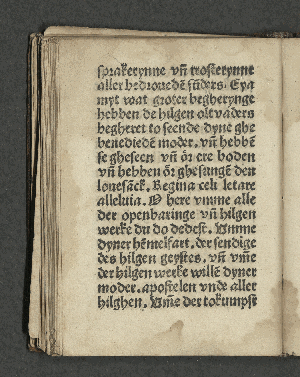 sprakerynne vn̄ trosterynne
aller bedrouedē sūders. Eya
myt wat groter begherynge
hebben de hilgen oltvaders
begheret to seende dyne ghe
benediedē moder. vn̄ hebbē
se gheseen vn̄ ör ere boden
vn̄ hebben ör ghesungē den
louesāck. Regina celi letare
alleluia. O here vmme alle
der openbaringe vn̄ hilgen
werke du do dedest. Vmme
dyner hēmelfart. der sendige
des hilgen geystes. vn̄ vm̄e
der hilgen werke willē dyner
moder. apostelen vnde aller
hilghen. Vm̄e der tokumpst